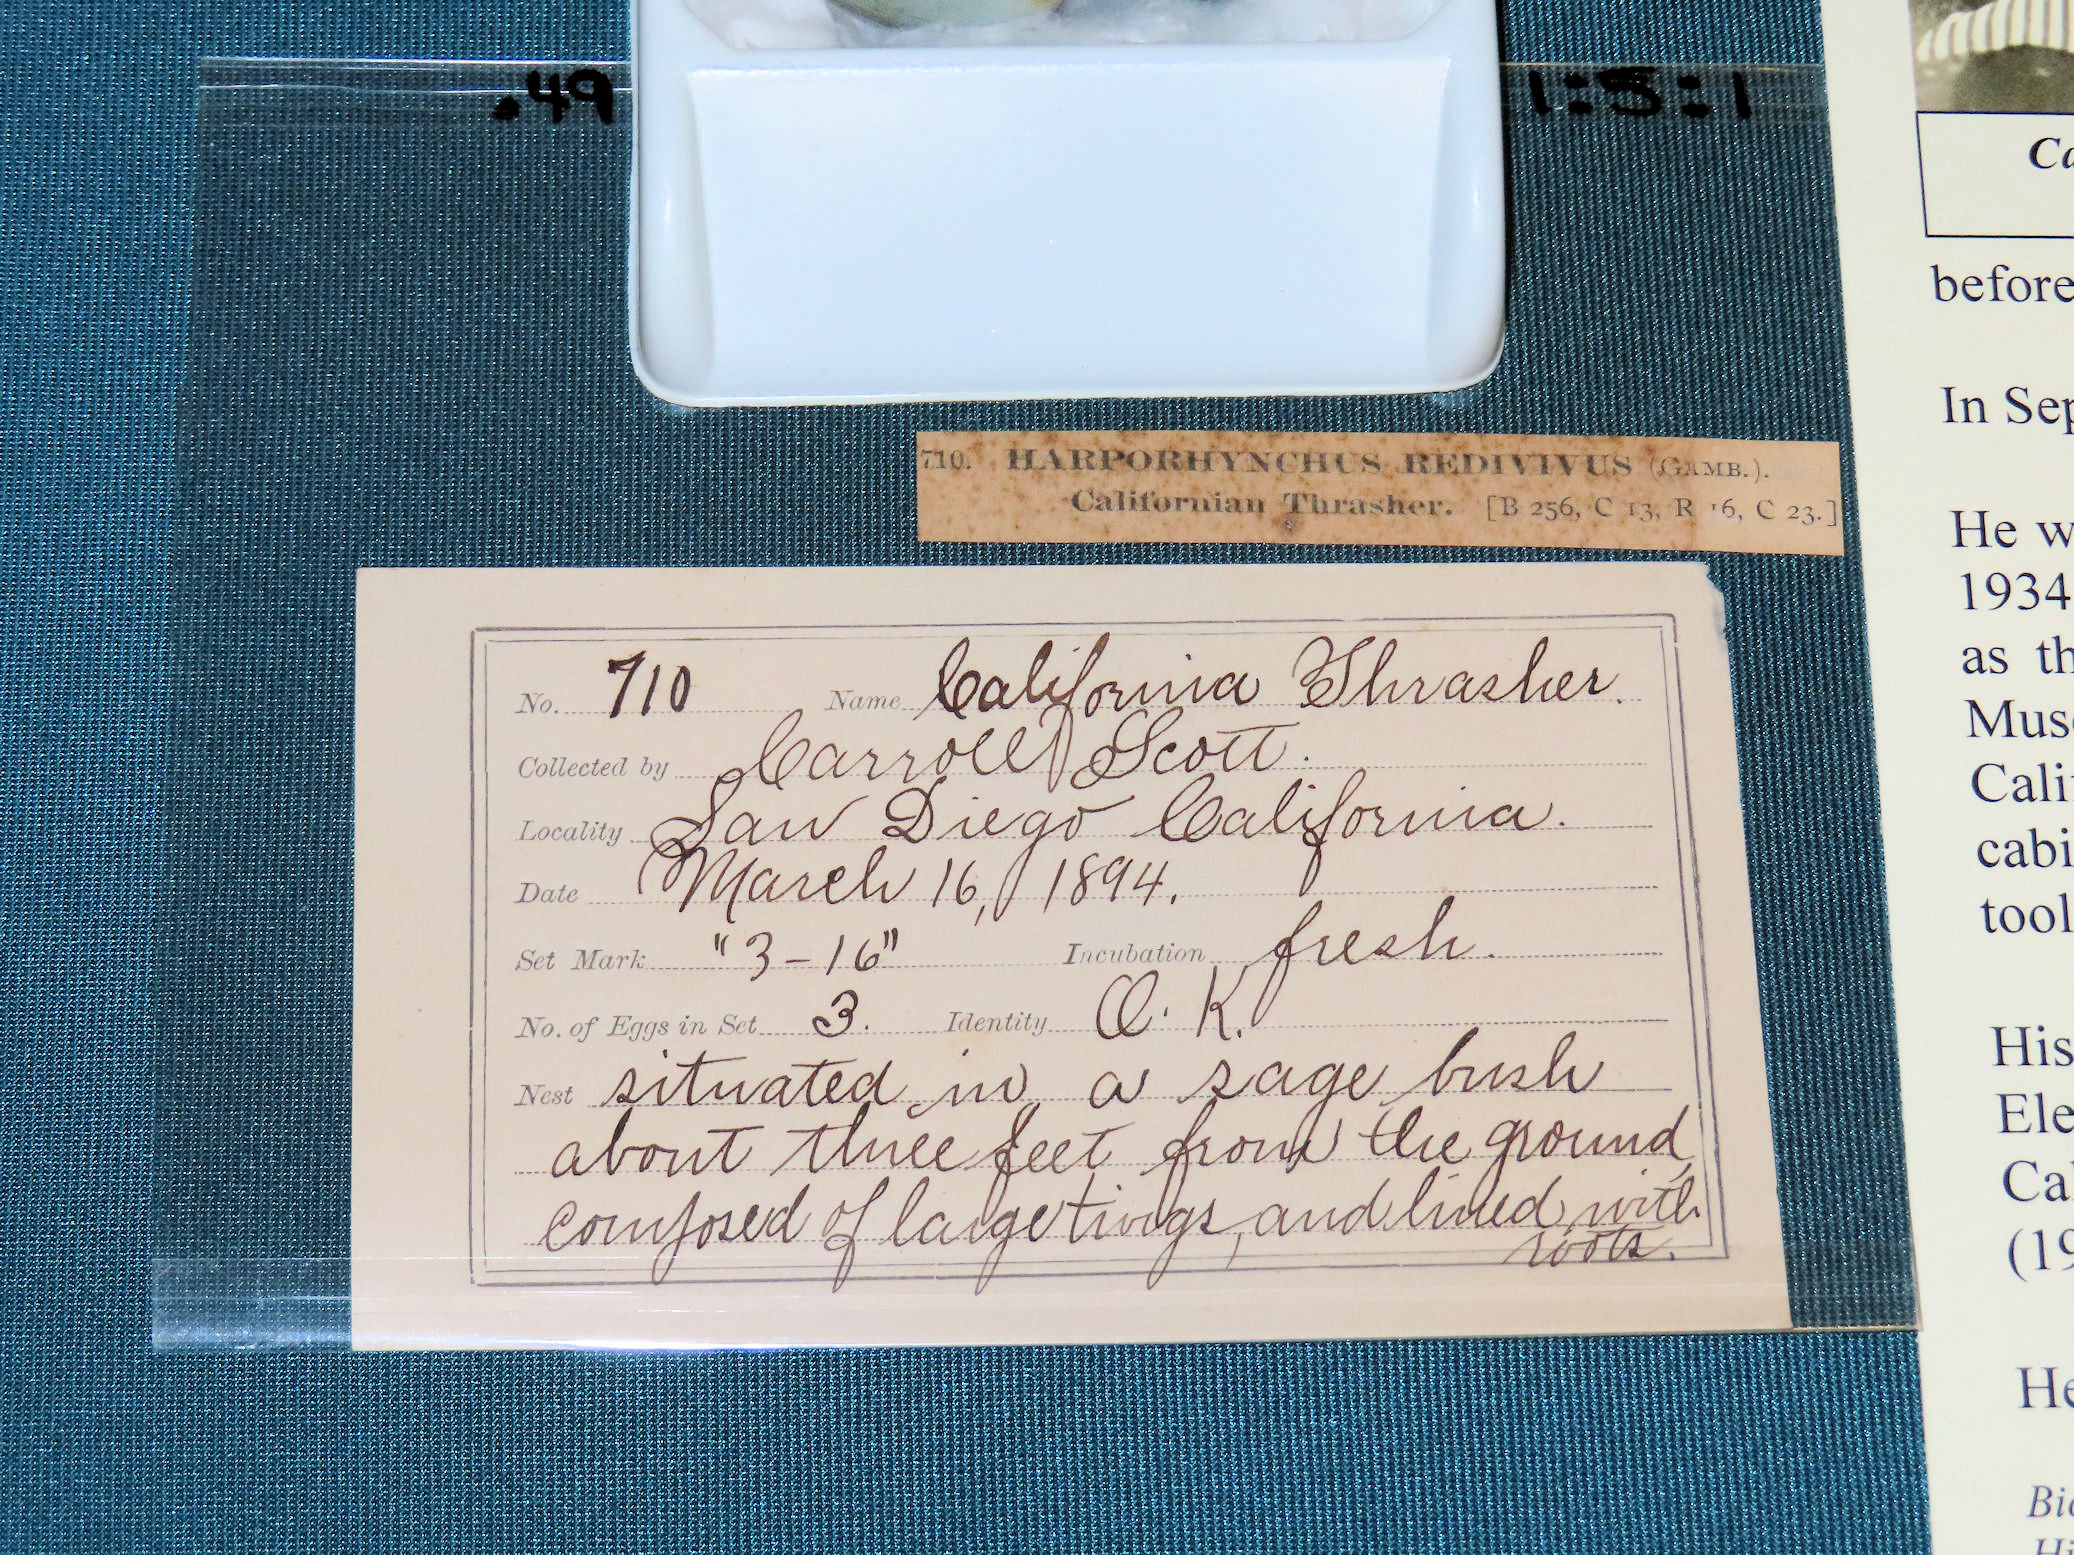 .49
1:5:1
710. HARPORHYNCHUS REDIVIVUS (GAMB.).
Californian Thrasher. [B 256, C 13, R 16, C 23.]
No. 710 Name California Thrasher.
Collected by Carroll Scott.
Locality San Diego California.
Date March 16, 1894.
Set Mark "3-16" Incubation fresh.
No. of Eggs in Set 3. Identity O. K.
Nest situated in a sage bush
about three feet from the ground,
composed of large twigs, and lined with
roots.
before
In Sep
He w
1934
as th
Muse
Calif
cabi
tool
His
Ele
Cal
(19
He